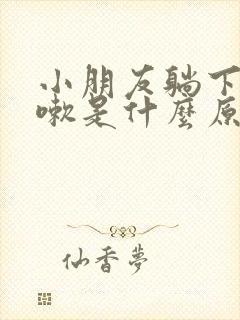 小朋友躺下
嗽是什麼原
仙香夢